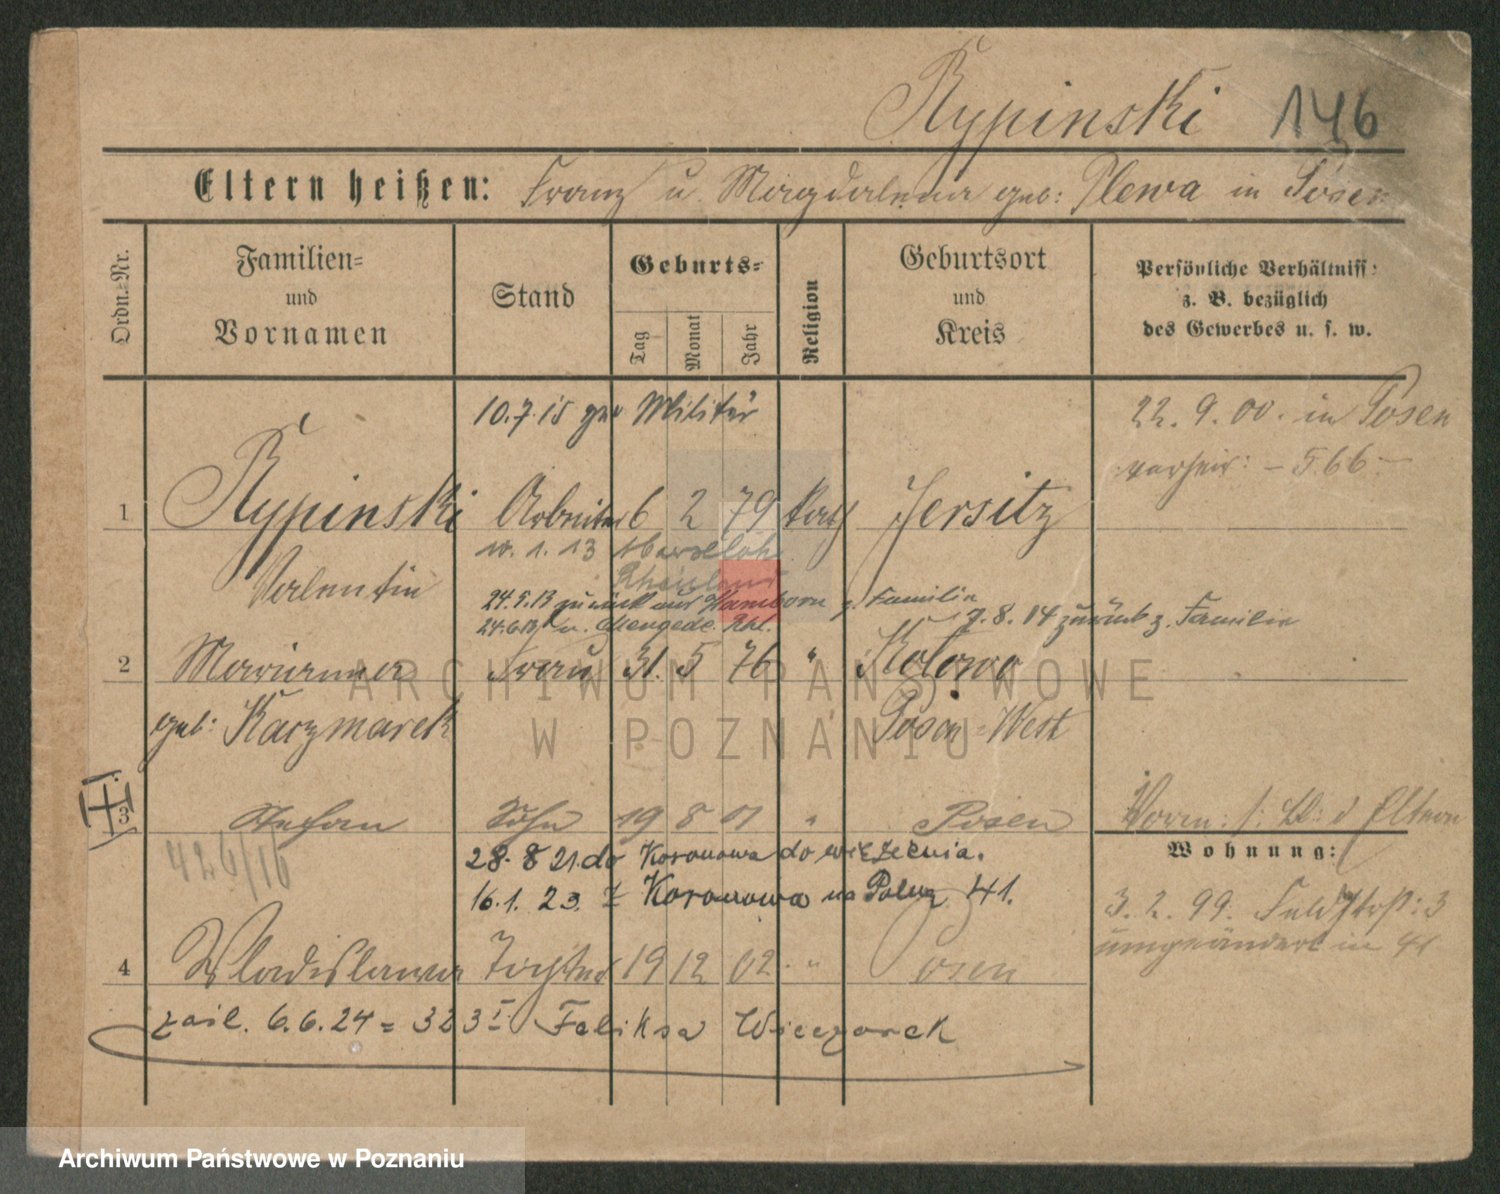 Rypinski 146
Eltern heißen: Franz u. Magdalena geb: Plewa in Posen
Ordn.-Nr.
Familien- und Vornamen
Stand
Geburts-
Tag
Monat
Jahr
Religion
Geburtsort und Kreis
Persönliche Verhältniss:
z. B. bezüglich
des Gewerbes u. s. w.
10.7.15 zur Militär
22. 9. 00. in Posen
verheir: – 566 –
1 Rypinski Arbeiter 6 2 79 kath Jersitz
Valentin
10. 1. 13
Rheinland
24.5.13 zurück aus Hamborn z. Familie
7. 8. 14 zurück z. Familie
24.6.13 n. Mengede. Rhl.
2 Marianna Frau 31. 5 76 " Kotowo
geb: Kaczmarek Posen-West
3 Stefan Sohn 19 8 01 " Posen
Eltern
Wohnung:
426/16
28. 8 21. do Koronowa do więzienia.
16. 1. 23. z Koronowa na Polną 41.
3. 2. 99. Feldstr: 3
umgeändert in 41
4 Wladislawa Tochter 19 12 02 " Posen
6.6.24 = 323 I Feliksa Wieczorek
ARCHIWUM PAŃSTWOWE
W POZNANIU
Archiwum Państwowe w Poznaniu